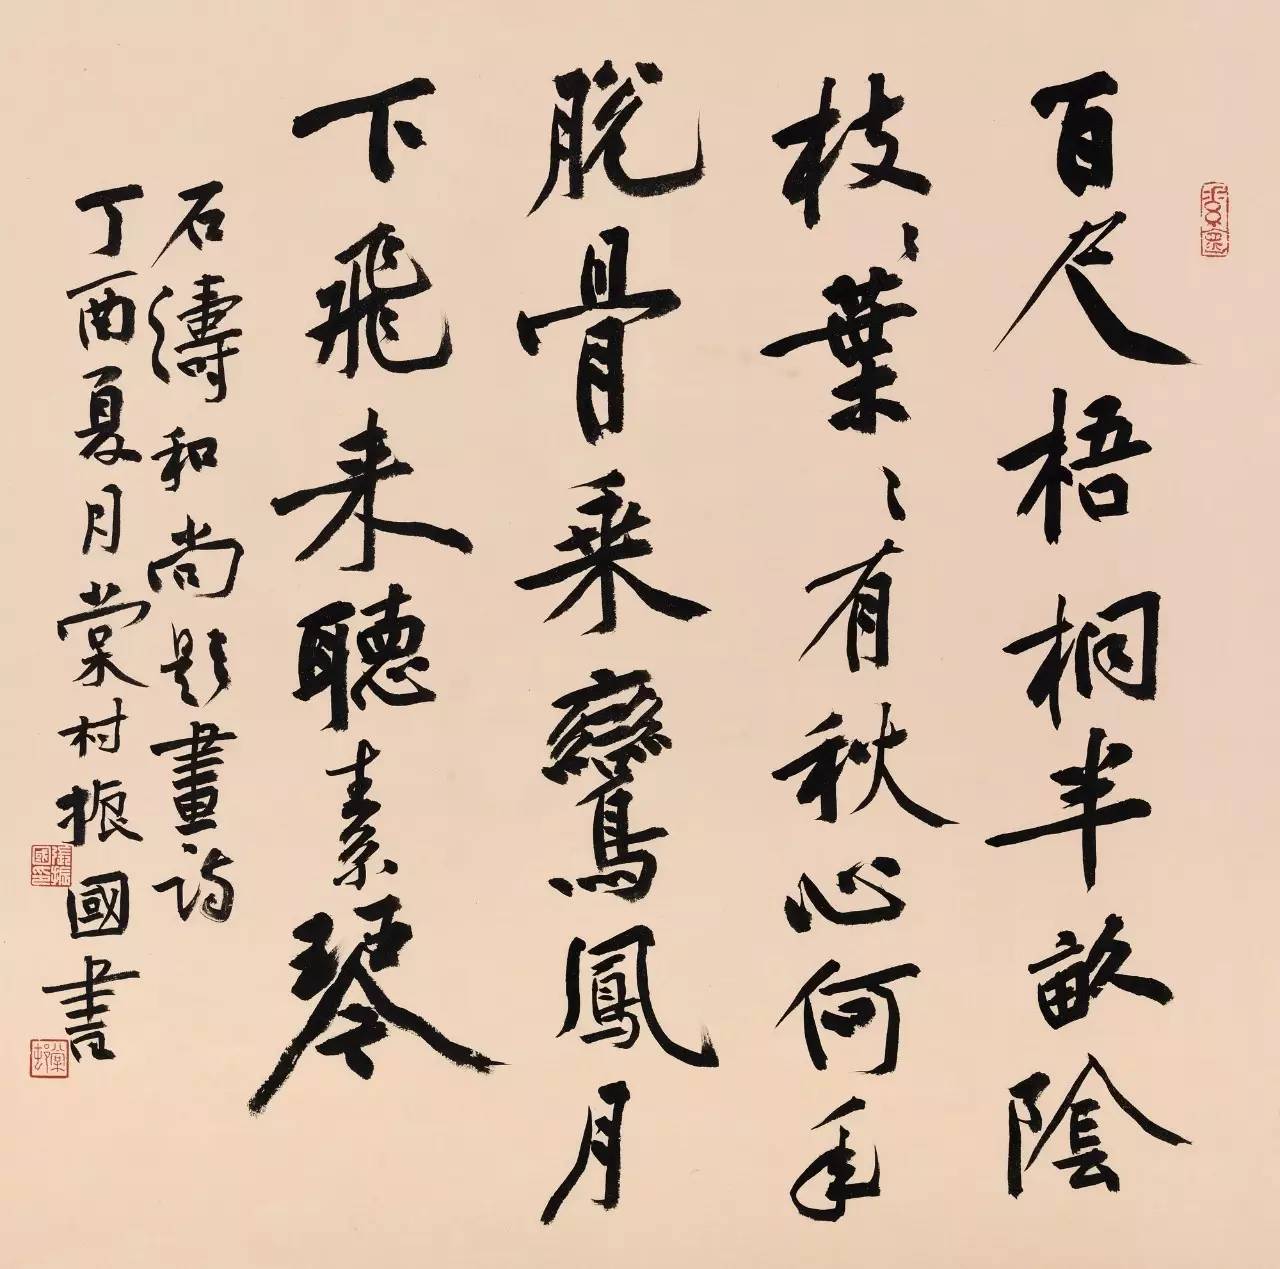 百尺梧桐半畝陰
枝〻葉〻有秋心何年
脫骨乘鸞鳳月
下飛来聽素琴
石濤和尚題畫詩
丁酉夏月棠村振國書